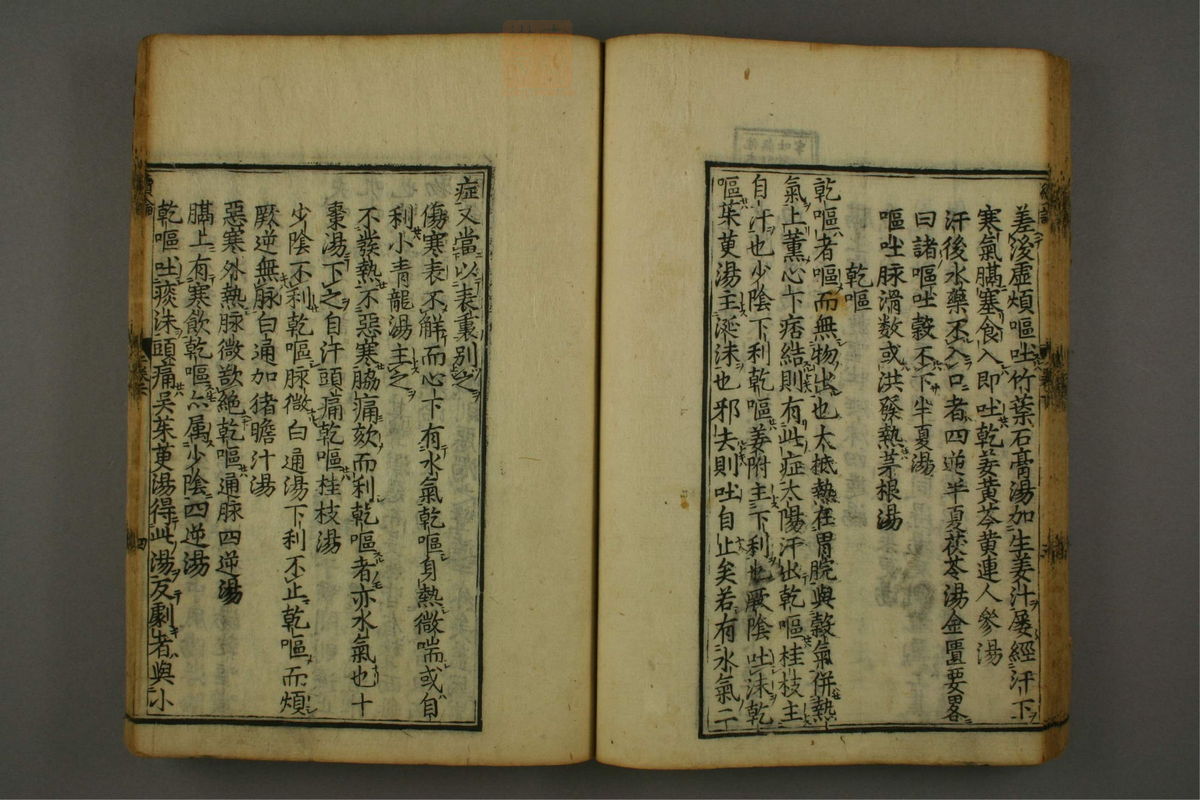 差後虚煩嘔吐竹葉石膏湯加生姜汁屡經汗下
寒氣膈塞食入即吐乾姜黄芩黄連人參湯
汗後水藥不入口者四逆半夏茯苓湯金匱要畧
曰諸嘔吐穀不下半夏湯
嘔吐脉滑数或洪發熱茅根湯
乾嘔
乾嘔者嘔而無物出也大抵熱在胃脘與穀氣併熱
氣上薫心下痞結則有此症太陽汗出乾嘔桂枝主
自汗也少陰下利乾嘔姜附主下利也厥陰吐沫乾
嘔茱萸湯主涎沫也邪去則吐自止矣若有水氣二
症又當以表裏別之
傷寒表不解而心下有水氣乾嘔身熱微喘或自
利小青龍湯主之
不發熱不惡寒脇痛欬而利乾嘔者亦水氣也十
棗湯下之自汗頭痛乾嘔桂枝湯
少陰不利乾嘔脉微白通湯下利不止乾嘔而煩
厥逆無脉白通加猪膽汁湯
惡寒外熱脉微欲絶乾嘔通脉四逆湯
膈上有寒飲乾嘔亦属少陰四逆湯
乾嘔吐痰沫頭痛吴茱萸湯得此湯反劇者與小